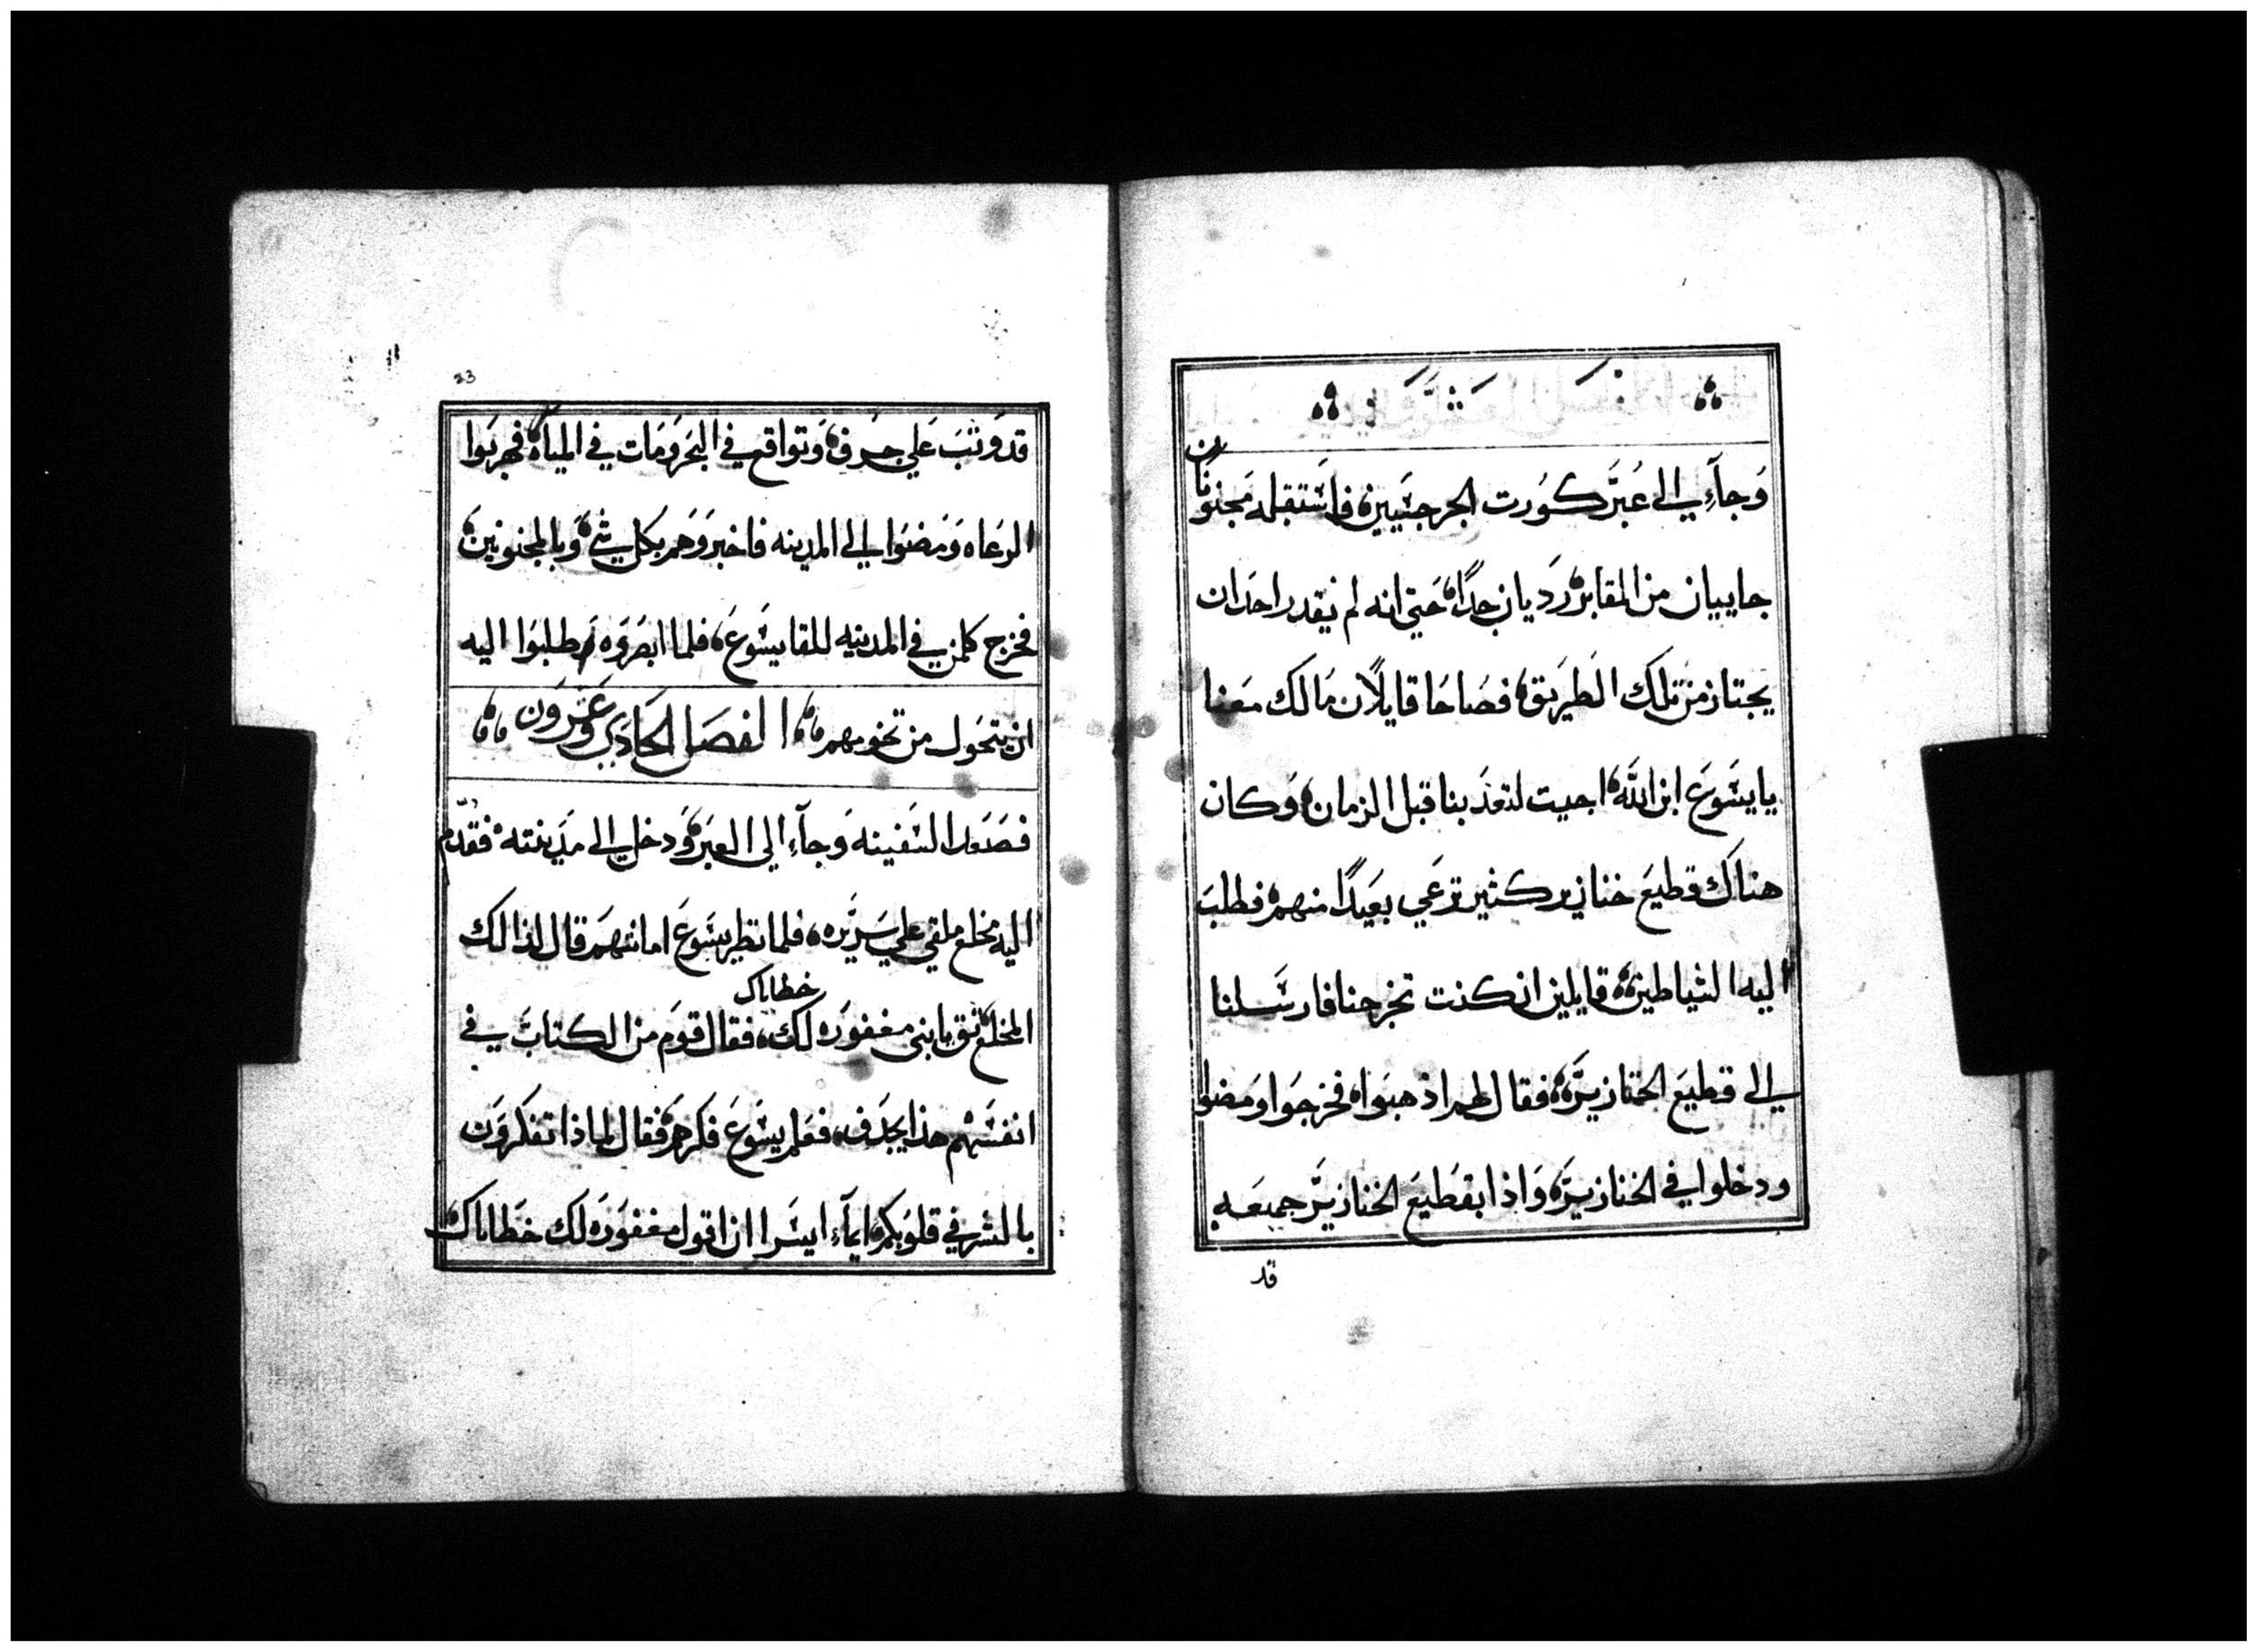 وَجآءِ الى عُبَرَ كوُرت الجرجسَيين فاسَتقبله مَجنونان
جاييان من المقابر رَديان جدًا حَتي انه لم يقدر احدَ ان
يجتاز من تلك الطَريق فصَاحَا قايلَان مَالك مَعنا
يايسَوعَ ابن اللَّه اجيت لتعذَ بنا قبل الزمان وَكان
هناكَ قطيعَ خنازير كثير ترعَي بعَيدًا منهم فطلبَ
اليه الشياطين قايلين ان كنت تخرجنا فارسَلنا
الي قطيعَ الخنازيرَ فقال لهم اذهبَوا فخرجَوا وَمضوا
ودخلوا في الخنازيرَ وَاذا بقطَيعَ الخنازيرَ جميعَه
قد
23
قد وَثبَ عَلي جرف وَتواقع في البحَر وَمَات في المياه فهربَوا
الرعَاه وَمَضوَا الي المدينه فاخبروَهم بكل شي وَبالمجنونين
فخرج كلمن في المدينه للقا يسَوعَ فلما ابصَروَه طلبوَا اليه
ان يتحَول من تخومهم الفصَل الحَادي وَعَشرَون
فصَعَد السَفينه وَجآءِ الي العبَر وَدخل الى مدَينته فقدّم
اليه مخلع ملقي علي سَريَره فلما نظر يسَوعَ امانتهمَ قال لذالك
المخلع ثق يابني مغفورَه لك خطاياك فقال قوَم من الكتابَ في
انفسَهم هذا يجدَف فعَلم يسَوعَ فكرهمَ فقال لماذا تفكروَن
بالشر في قلوَبكم ايمآء ايسَر ان اقول مغفوَرَه لك خطَاياك